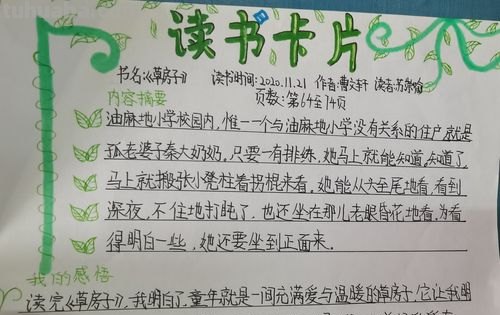 读书卡片
书名:《草房子》 读书时间:2020.11.21 作者:曹文轩 读者:苏
内容摘要 页数:第64至74页
油麻地小学校园内,惟一一个与油麻地小学没有关系的住户就是
孤老婆子秦大奶奶,只要一有排练,她马上就能知道,知道了,
马上就搬张小凳柱着拐棍来看,她能从头至尾地看,看到
深夜,不住地打盹了,也还坐在那儿老眼昏花地看,为看
得明白一些,她还要坐到正面来.
我的感悟
读完《草房子》,我明白了,童年就是一间充满爱与温暖的草房子,它让我明